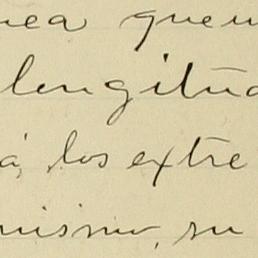 nea que
longitu
á los extre
mismo, su